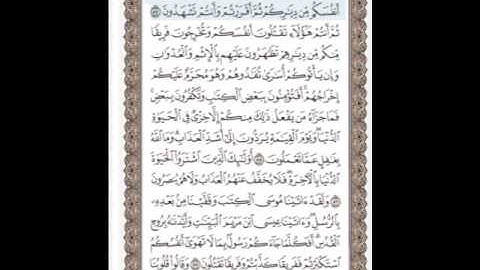 أَنفُسَكُم مِّن دِيَٰرِكُمْ ثُمَّ أَقْرَرْتُمْ وَأَنتُمْ تَشْهَدُونَ ٨٤
ثُمَّ أَنتُمْ هَٰٓؤُلَآءِ تَقْتُلُونَ أَنفُسَكُمْ وَتُخْرِجُونَ فَرِيقًا
مِّنكُم مِّن دِيَٰرِهِمْ تَظَٰهَرُونَ عَلَيْهِم بِٱلْإِثْمِ وَٱلْعُدْوَٰنِ
وَإِن يَأْتُوكُمْ أُسَٰرَىٰ تُفَٰدُوهُمْ وَهُوَ مُحَرَّمٌ عَلَيْكُمْ
إِخْرَاجُهُمْ ۚ أَفَتُؤْمِنُونَ بِبَعْضِ ٱلْكِتَٰبِ وَتَكْفُرُونَ بِبَعْضٍ ۚ
فَمَا جَزَآءُ مَن يَفْعَلُ ذَٰلِكَ مِنكُمْ إِلَّا خِزْىٌ فِى ٱلْحَيَوٰةِ
ٱلدُّنْيَا ۖ وَيَوْمَ ٱلْقِيَٰمَةِ يُرَدُّونَ إِلَىٰٓ أَشَدِّ ٱلْعَذَابِ ۗ وَمَا ٱللَّهُ
بِغَٰفِلٍ عَمَّا تَعْمَلُونَ ٨٥ أُو۟لَٰٓئِكَ ٱلَّذِينَ ٱشْتَرَوُا۟ ٱلْحَيَوٰةَ
ٱلدُّنْيَا بِٱلْءَاخِرَةِ ۖ فَلَا يُخَفَّفُ عَنْهُمُ ٱلْعَذَابُ وَلَا هُمْ يُنصَرُونَ
٨٦ وَلَقَدْ ءَاتَيْنَا مُوسَى ٱلْكِتَٰبَ وَقَفَّيْنَا مِنۢ بَعْدِهِۦ
بِٱلرُّسُلِ ۖ وَءَاتَيْنَا عِيسَى ٱبْنَ مَرْيَمَ ٱلْبَيِّنَٰتِ وَأَيَّدْنَٰهُ بِرُوحِ
ٱلْقُدُسِ ۗ أَفَكُلَّمَا جَآءَكُمْ رَسُولٌۢ بِمَا لَا تَهْوَىٰٓ أَنفُسُكُمُ
ٱسْتَكْبَرْتُمْ فَفَرِيقًا كَذَّبْتُمْ وَفَرِيقًا تَقْتُلُونَ ٨٧ وَقَالُوا۟ قُلُوبُنَا